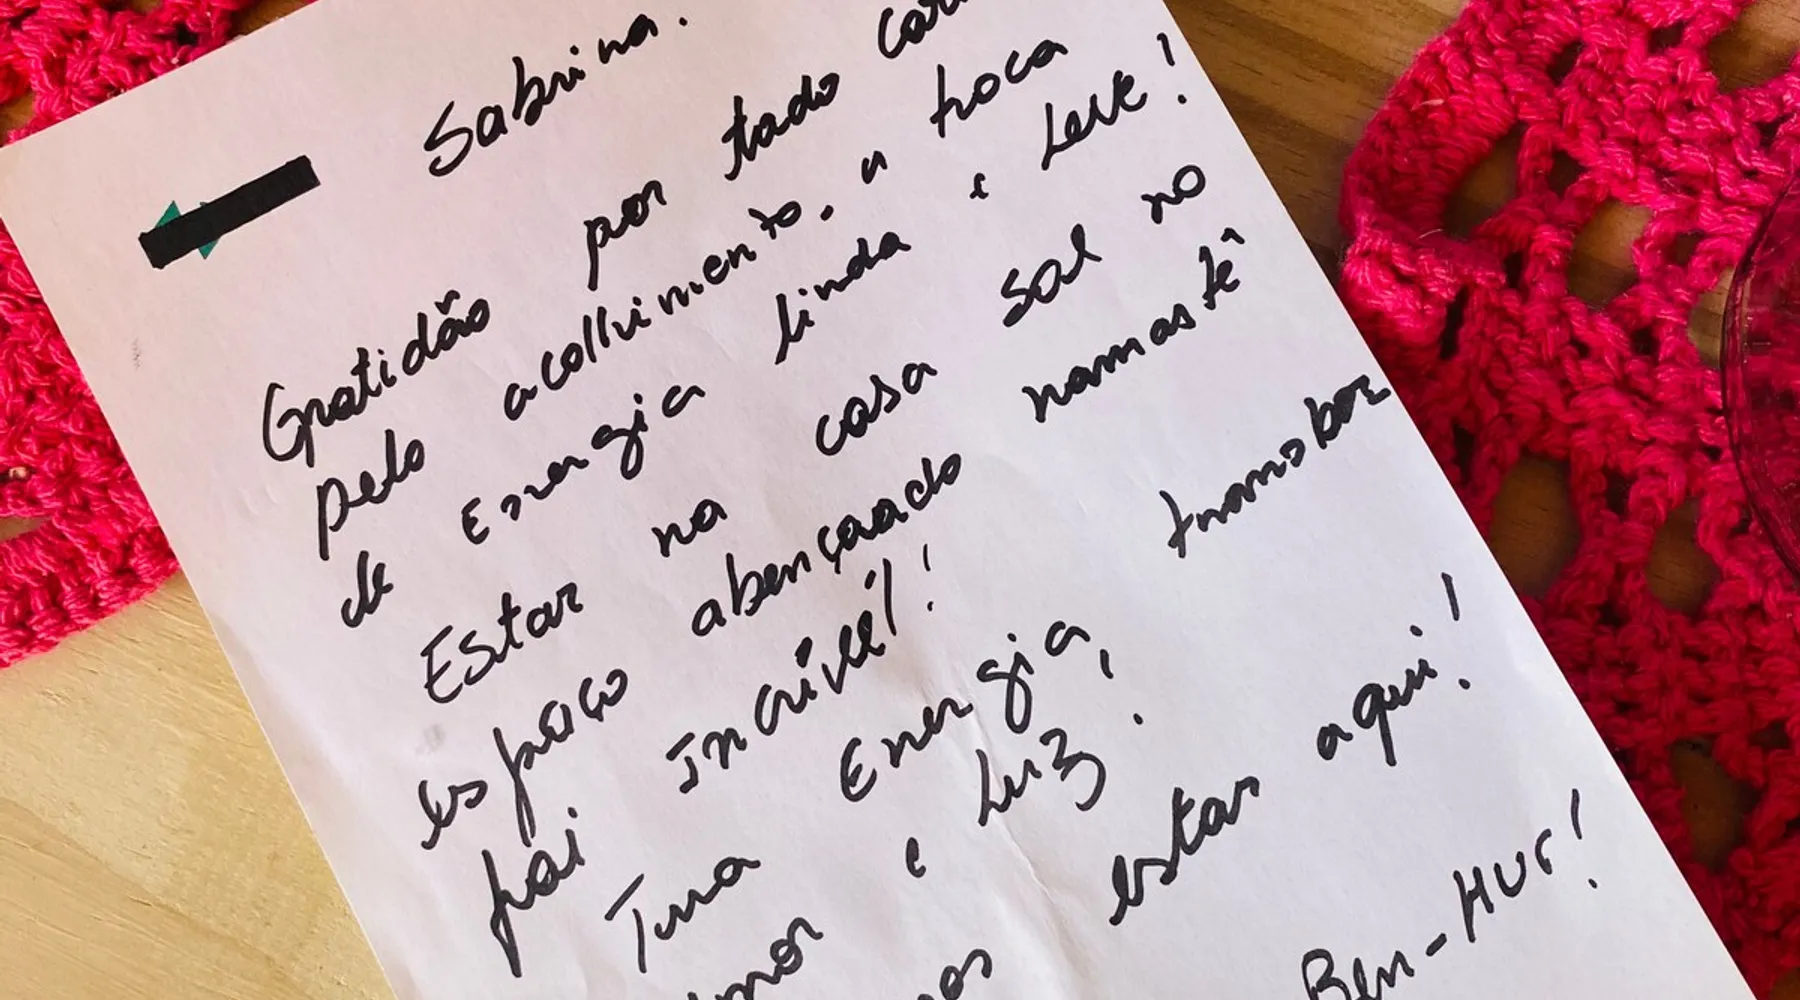 Sabrina.
Gratidão por todo
pelo acolhimento, a troca
de Energia linda e Leve!
Estar na casa sol no
espaço abençoado namastê
foi Incrível!
Tua Energia transborda
amor e Luz!
estar aqui!
Ben-Hur!